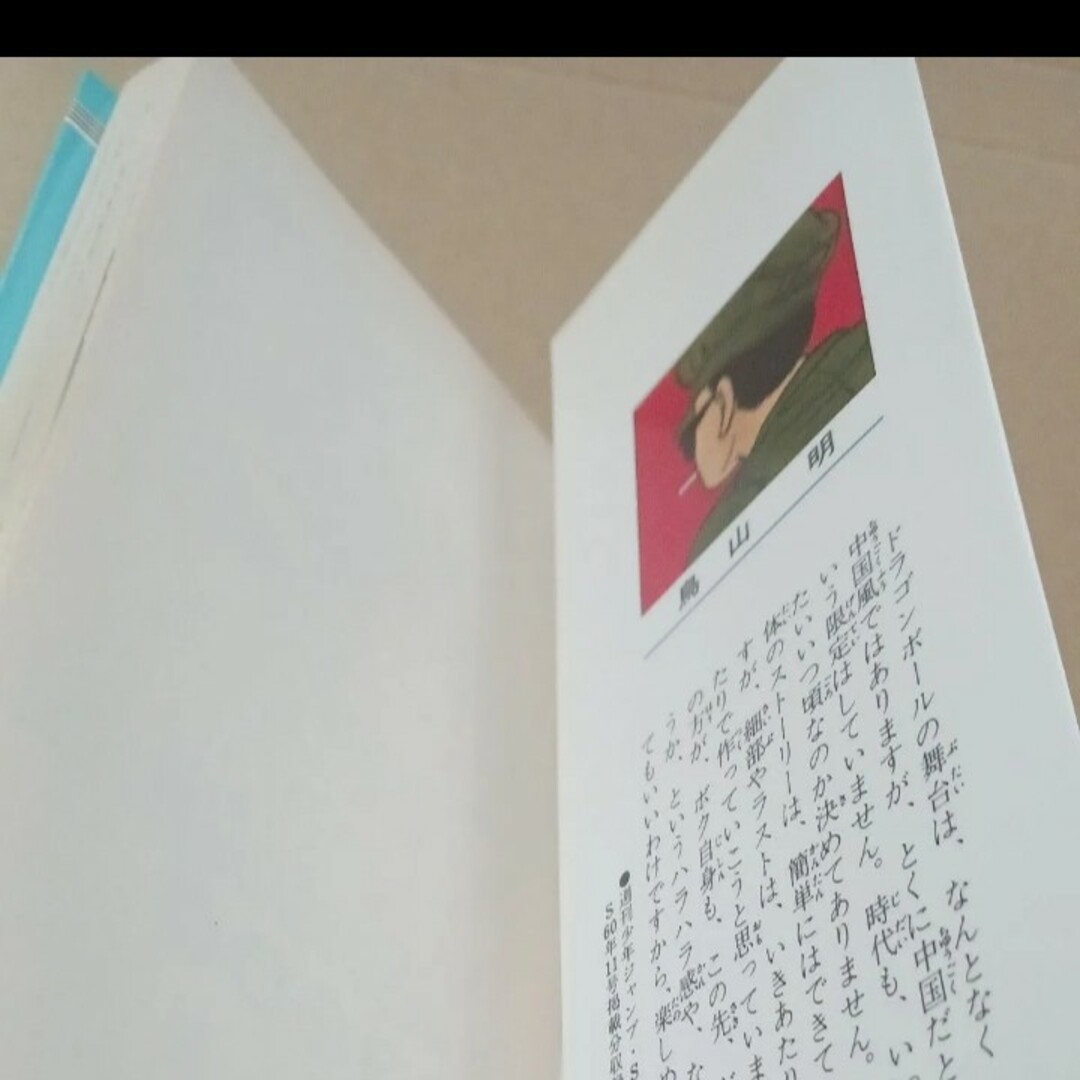 鳥山明
ドラゴンボールの舞台は、なんとなく
中国風ではありますが、とくに中国だと
いう限定はしていません。時代も、い
たいいつ頃なのか決めてありません。
体のストーリーは、簡単にはできて
すが、細部やラストは、いきあたり
たりで作っていこうと思っていま
の方が、ボク自身も、この先、
うか、というハラハラ感や、
てもいいわけですから、楽しめ
●週刊少年ジャンプ・S
S60年11号掲載分収